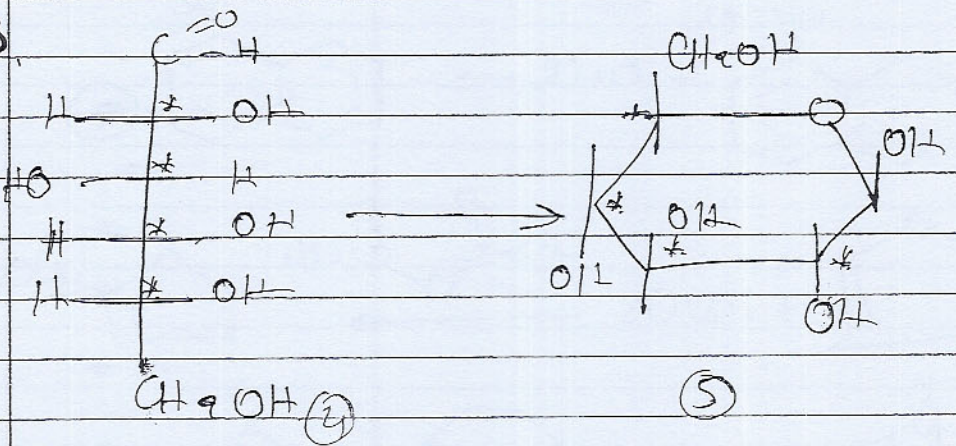 =O
C-H
H * OH
HO * H
H * OH
H * OH
CH2OH ④
CH2OH
* O
OH
*
OH
*
*
OH
OH
⑤